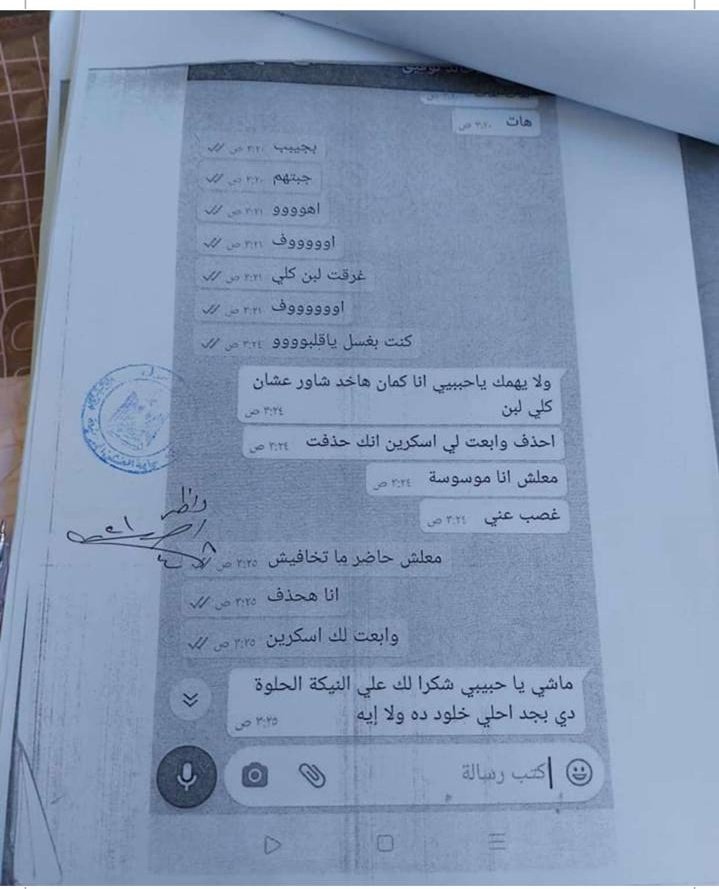 هات ٣:٢٠ ص
بجيبب ٣:٢٠ ص
جبتهم ٣:٢٠ ص
اهوووو ٣:٢١ ص
اوووووف ٣:٢١ ص
غرقت لبن كلي ٣:٢١ ص
اووووووف ٣:٢١ ص
كنت بغسل ياقلبوووو ٣:٢٤ ص
ولا يهمك ياحببيي انا كمان هاخد شاور عشان
كلي لبن ٣:٢٤ ص
احذف وابعت لي اسكرين انك حذفت ٣:٢٤ ص
معلش انا موسوسة ٣:٢٤ ص
غصب عني ٣:٢٤ ص
معلش حاضر ما تخافيش ٣:٢٥ ص
انا هحذف ٣:٢٥ ص
وابعت لك اسكرين ٣:٢٥ ص
ماشي يا حبيبي شكرا لك علي النيكة الحلوة
دي بجد احلي خلود ده ولا إيه ٣:٢٥ ص
اكتب رسالة